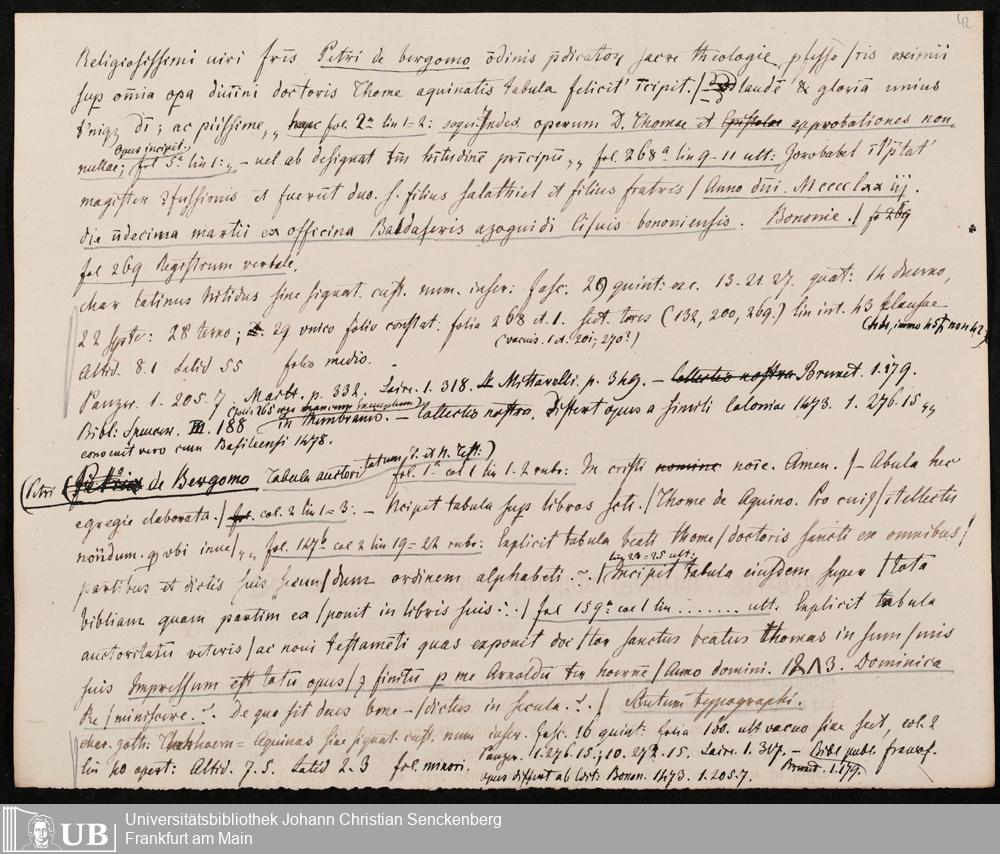 42
Religiosissimi uiri fris Petri de bergomo ōdinis p̄dicator sacre theologie pfesso/ris eximii
sup om̄ia opa diuini doctoris Thome aquinatis tabula felicit' icipit./ laudē & gloriā unius
di; ac piissime,, fol. 2a lin 1=2: Index operum D. Thomae et approbationes non
Opus incipit.
nullae; fol 5a lin 1: – uel ab designat fol. 268a lin 9-11 ult: Zorobabel
magister et fuerūt duo. s. filius salathiel et filius fratris / Anno dni. Mcccclxxiij.
die ūdecima martii ex officina Baldaseris azoguidi Ciuis bononiensis. Bononie./ fo 269
fol 269 Registrum verbale.
char latinus nitidus sine signat. cust. num. inser. fasc. 29 quint: exc. 13. 21. 27. quat: 14 duerno,
22 sexte: 28 terno; 29 unico folio constat: folia 268 et 1. sed. tres (132, 200, 269.) lin int. 43 clausae
(vacuis. 1 et. 201; 270?) (immo 45 non 42)
Altid. 8.1 Latid 55 folio medio.
Panzer. 1. 205. 7. Maitt. p. 332. Laire. 1. 318. Mittarelli. p. 349. – Collectio nostra Brunet. 1.179.
Bibl: Spencer. III. 188 in membranis. – Collectio nostra. Differt opus a simili Coloniae 1473. 1. 276. 15,,
conuenit vero cum Basileensi 1478.
(Petri de Bergomo Tabula auctoritatum v. et n. Test:) fol. 1a col 1 lin 1.2 rubr: In cristi nomine noie. Amen. /– Abula hec
egregie elaborata./ fol. col. 2 lin 1=3: – Ncipit tabula sup libros scti./ Thome de Aquino. Pro cui9/ itellectu
nondum. q vbi inue/,, fol. 127b col 2 lin 19=22 rubr: Explicit tabula beati thome/ doctoris sancti ex omnibus/
lin 24=25 ult:
partibus et dictis suis secun/dum ordinem alphabeti. /Incipit tabula eiusdem super /tota
bibliam quam partim ex/ponit in libris suis / fol 159a col 1 lin ....... ult. Explicit tabula
auctoritatū veteris /ac noui testamēti quas exponit doc/tor sanctus beatus thomas in sum/mis
suis Impressum est totū opus/ finitū p me Arnaldū ter hoernē /Anno domini. 1473. Dominica
Re/miniscere. De quo sit deus bene=/dictus in secula. / Scutum typographi.
char. goth: Therhoern= Aquinas sine signat. cust. num inser. fasc. 16 quint: folia 160. ult vacuo sine sed, col. 2
lin 40 apert: Altid. 7.5. Latid 2.3 fol. minori. Panzer. 1.276.15; 10. 278. 15. Laire. 1. 307. – Bibl publ. francof.
opus differt ab edit: Bonon. 1473. 1. 205. 7. Brunet. 1.179.
UB
Universitätsbibliothek Johann Christian Senckenberg
Frankfurt am Main